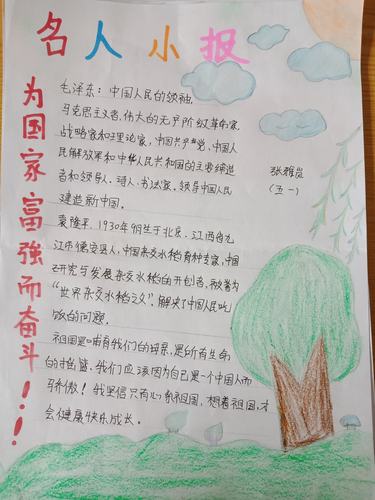 名人小报
为国家富強而奋斗!!!
毛泽东：中国人民的领袖，
马克思主义者，伟大的无产阶级革命家，
战略家和理论家，中国共产党、中国人
民解放军和中华人民共和国的主要缔造
者和领导人，诗人，书法家。领导中国人民
建造新中国。
张雅岚
（五一）
袁隆平，1930年9月生于北京，江西省九
江市德安县人，中国杂交水稻育种专家，中国
研究与发展杂交水稻的开创者，被誉为
“世界杂交水稻之父”。解决了中国人民吃
饭的问题。
祖国是哺育我们的母亲，是所有生命
的摇篮，我们应该因为自己是一个中国人而
骄傲！我坚信只有心系祖国，想着祖国，才
会健康快乐成长。